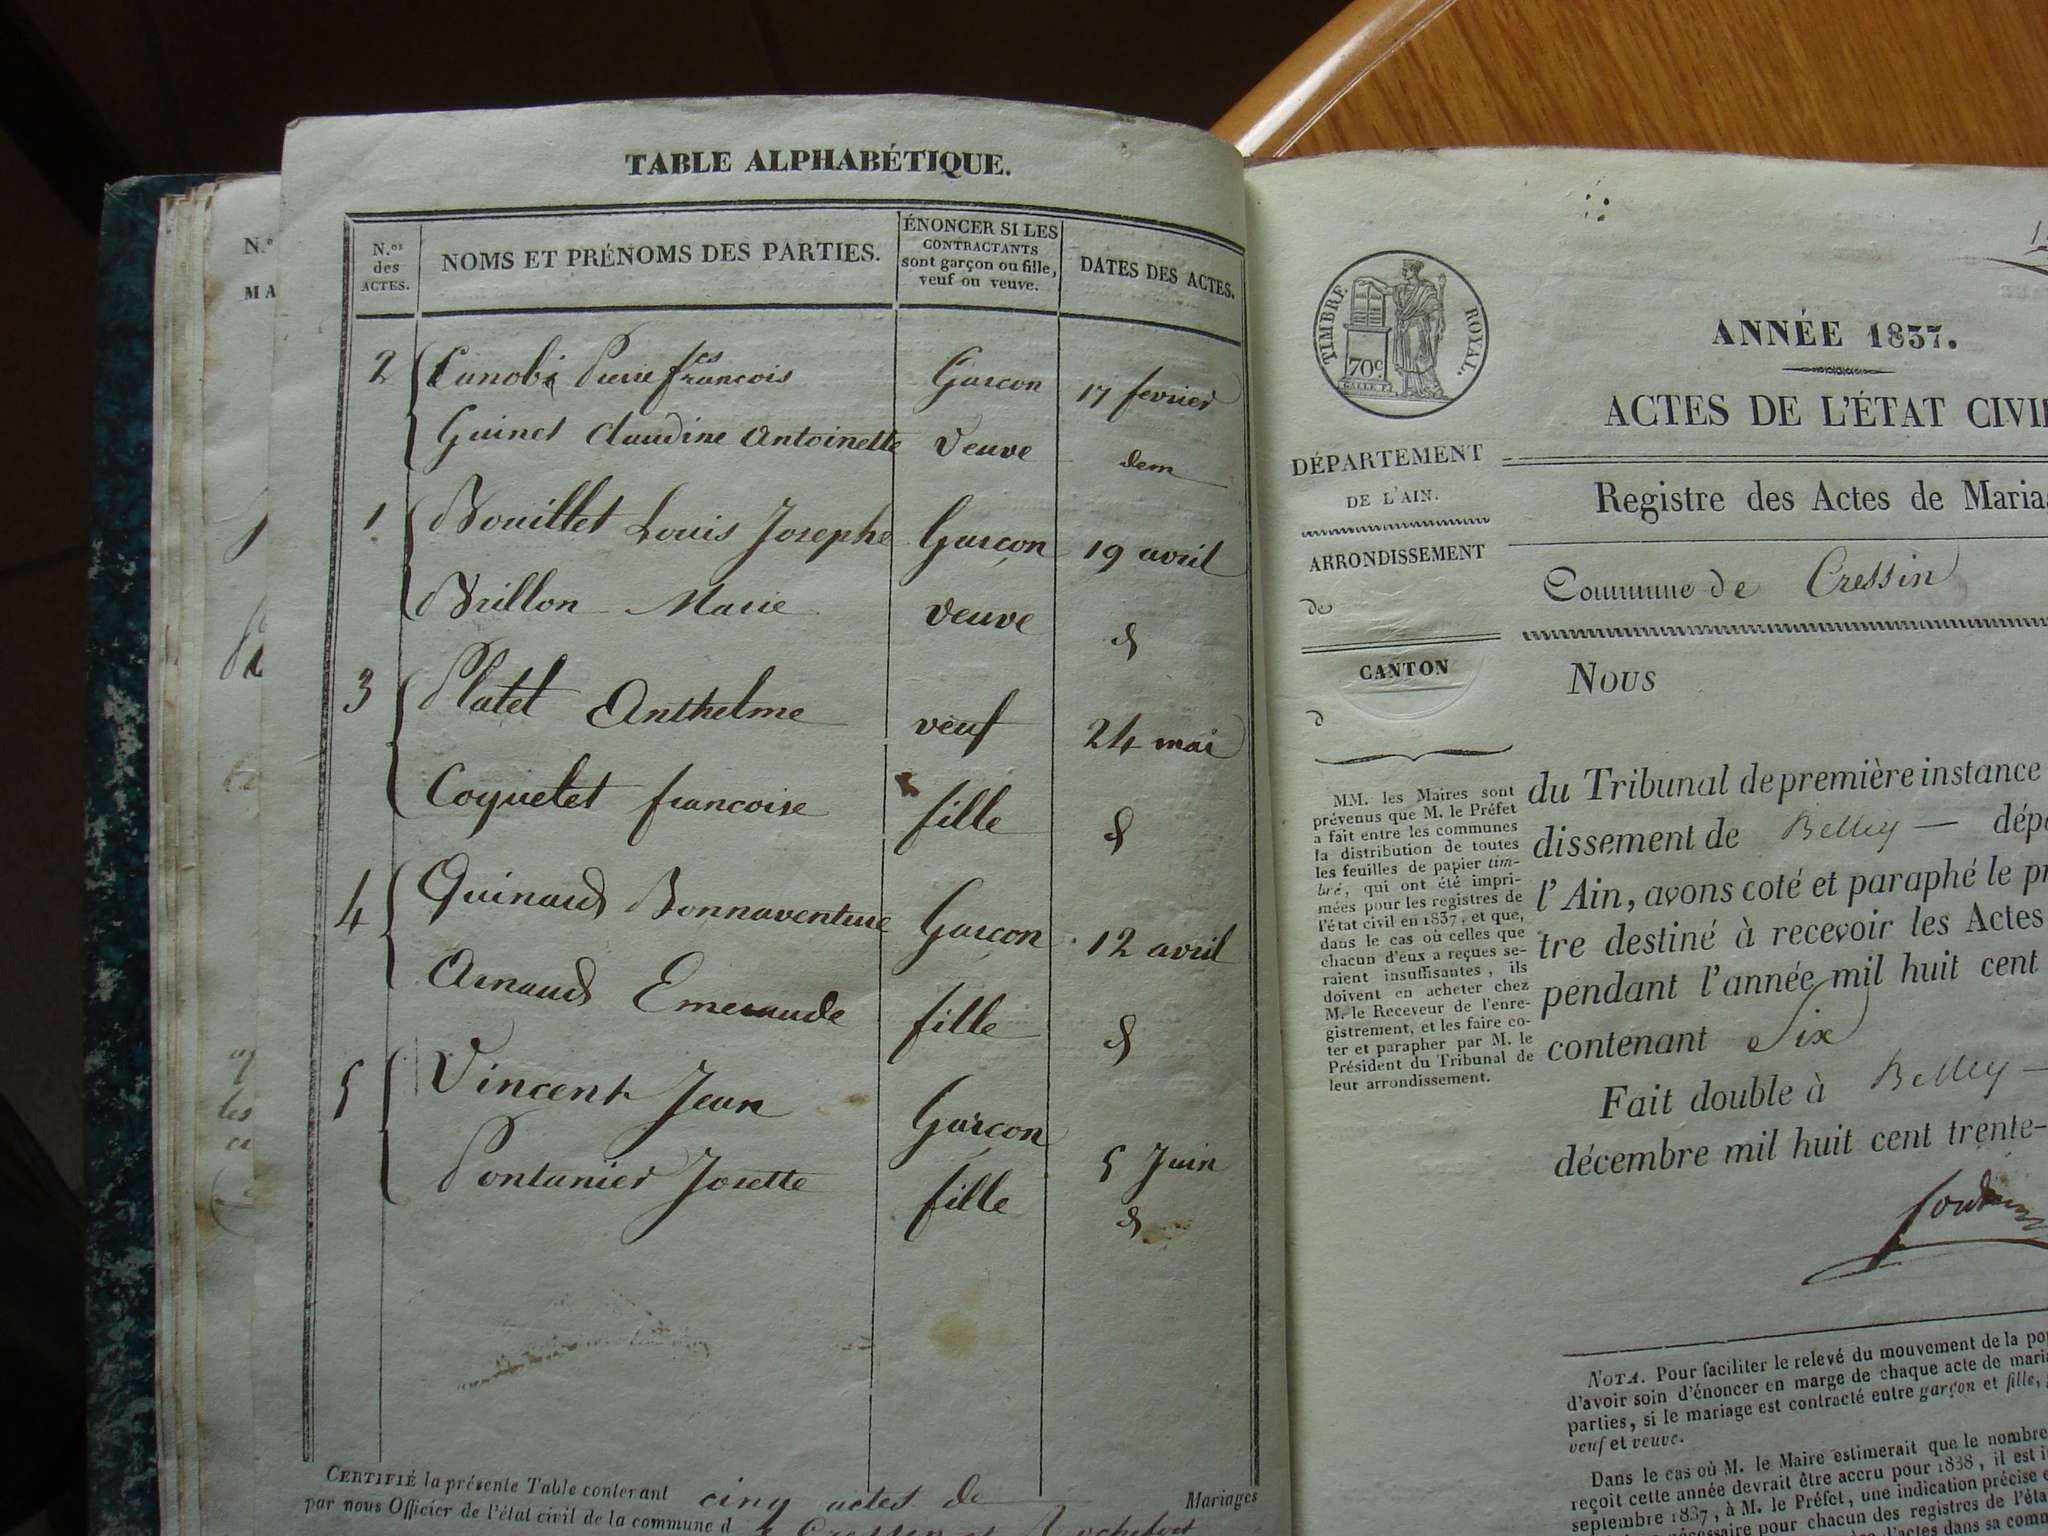 TABLE ALPHABÉTIQUE.
N.os des ACTES.
NOMS ET PRÉNOMS DES PARTIES.
ÉNONCER SI LES
CONTRACTANTS
sont garçon ou fille,
veuf ou veuve.
DATES DES ACTES.
2 Pierre françois Garcon 17 fevrier
Guinet Claudine Antoinette Veuve dem
1 Bouillet Louis Josephe Garcon 19 avril
Brillon Marie veuve d
3 Platel Anthelme veuf 24 mai
Coquelet francoise fille d
4 Guinaud Bonnaventure Garcon 12 avril
Arnaud Emeraude fille d
5 Vincent Jean Garcon 5 Juin
Pontanier Josette fille d
CERTIFIÉ la présente Table contenant cinq actes de Mariages
par nous Officier de l'état civil de la commune d Cressin et Rochefort
N.o
MA
TIMBRE ROYAL.
70c.
ANNÉE 1837.
ACTES DE L'ÉTAT CIVI
DÉPARTEMENT
DE L'AIN.
Registre des Actes de Maria
ARRONDISSEMENT
de
Commune de Cressin
CANTON
d
Nous
MM. les Maires sont
prévenus que M. le Préfet
a fait entre les communes
la distribution de toutes
les feuilles de papier tim-
bré, qui ont été impri-
mées pour les registres de
l'état civil en 1837, et que,
dans le cas où celles que
chacun d'eux a reçues se-
raient insuffisantes, ils
doivent en acheter chez
M. le Receveur de l'enre-
gistrement, et les faire co-
ter et parapher par M. le
Président du Tribunal de
leur arrondissement.
du Tribunal de première instance
dissement de Belley — dépa
l'Ain, avons coté et paraphé le pr
tre destiné à recevoir les Actes
pendant l'année mil huit cent
contenant Six
Fait double à Belley —
décembre mil huit cent trente-
NOTA. Pour faciliter le relevé du mouvement de la po
d'avoir soin d'énoncer en marge de chaque acte de maria
parties, si le mariage est contracté entre garçon et fille,
veuf et veuve.
Dans le cas où M. le Maire estimerait que le nombre
reçoit cette année devrait être accru pour 1838, il est i
septembre 1837, à M. le Préfet, une indication précise
nécessaire pour chacun des registres de l'éta
d'actes dans sa comm